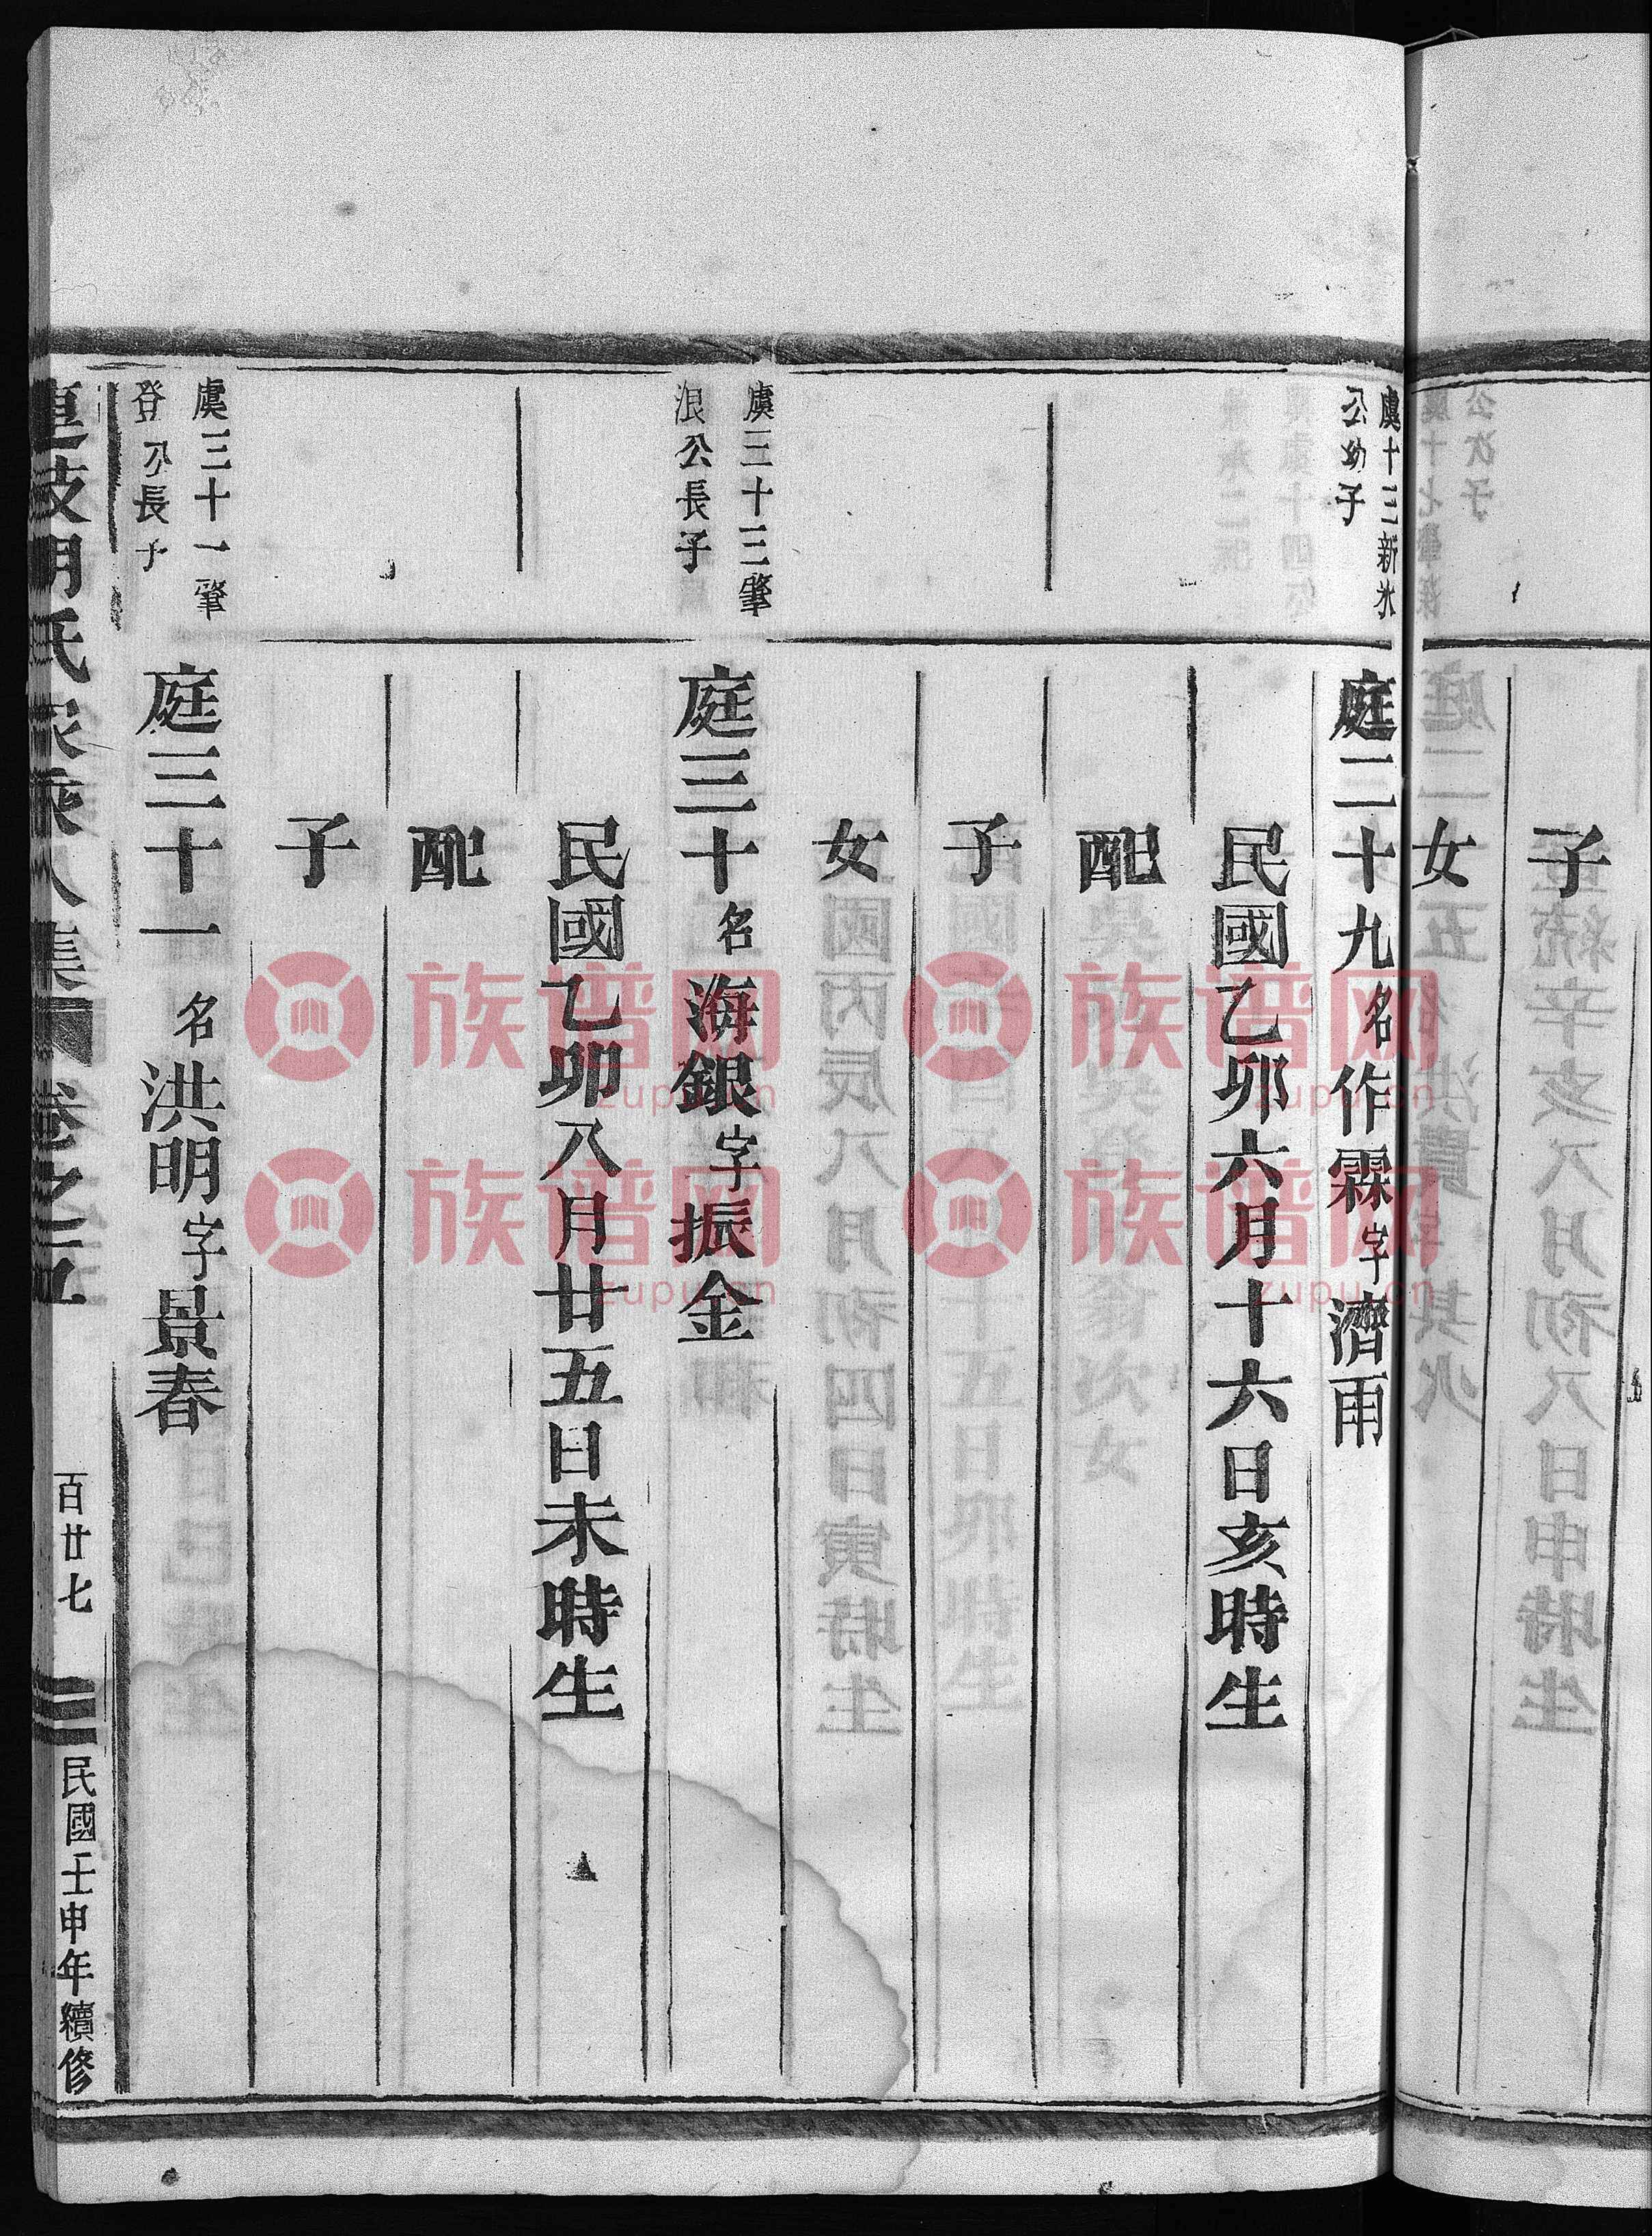 子
女
虞十三新水
公幼子
庭二十九名作霖字濟雨
民國乙卯六月十六日亥時生
配
子
女
虞三十三肇
浪公長子
庭三十名海銀字振金
民國乙卯八月廿五日未時生
配
子
虞三十一肇
登公長子
庭三十一名洪明字景春
胡氏家乘人集
卷之五
百廿七
民國壬申年續修
族谱网
zupu.cn
族谱网
zupu.cn
族谱网
zupu.cn
族谱网
zupu.cn